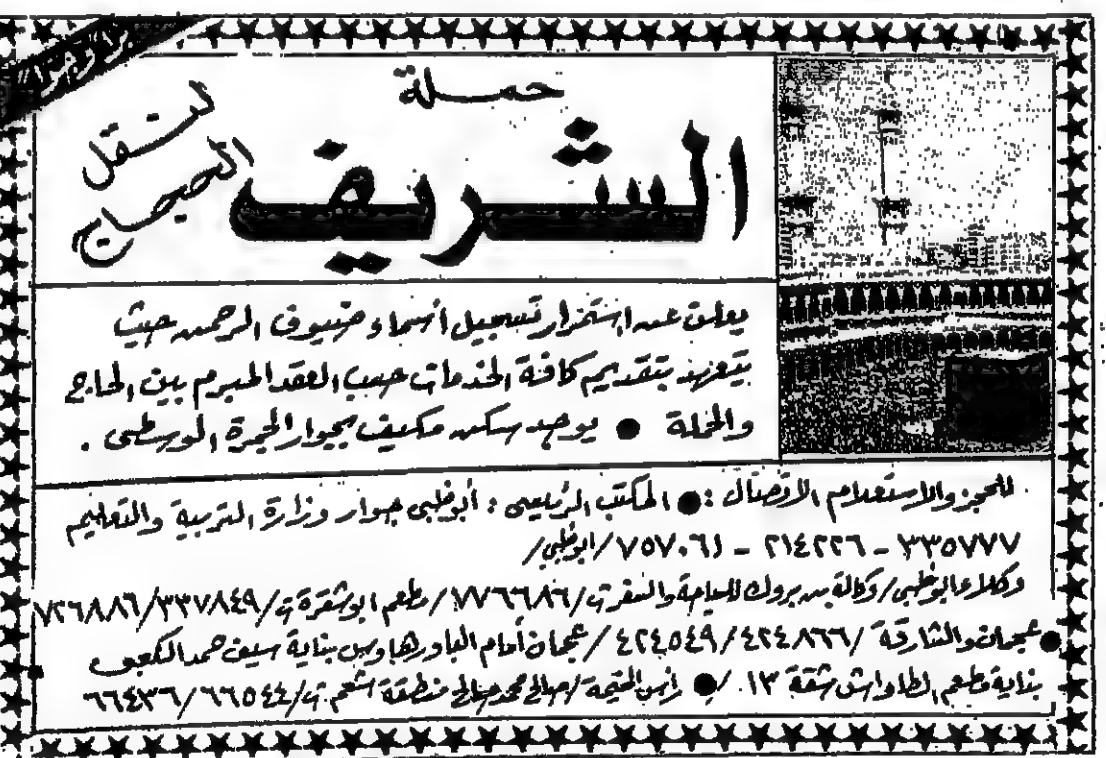 حملة
الشريف
لنقل
الحجاج
يعلن عن استمرار تسجيل أسماء ضيوف الرحمن حيث
يتعهد بتقديم كافة الخدمات حسب العقد المبرم بين الحاج
والحملة ● يوجد سكن مكيف بجوار الجمرة الوسطى .
للحجز والاستعلام الاتصال : ● المكتب الرئيسي : أبوظبي جوار وزارة التربية والتعليم
٣٣٥٧٧٧ - ٢١٤٢٢٦ - ٧٥٧٠٦١ /ابوظبي/
وكلاء ابوظبي/وكالة بن بروك للسياحة والسفر ت/٧٧٦٦٨٦/ مطعم ابوشقرة ت/٣٣٧٨٤٩/٧٢٦٨٨٦
● عجمان والشارقة /٤٢٤٨٦٦/٤٢٤٥٤٩ /عجمان أمام الباورهاوس بناية سيف حمد الكعبي
بناية مطعم الطاواش شقة ١٣ ./ ● رأس الخيمة/صالح محمد صالح منطقة شعم ت/٦٦٥٤٤/٦٦٤٣٦